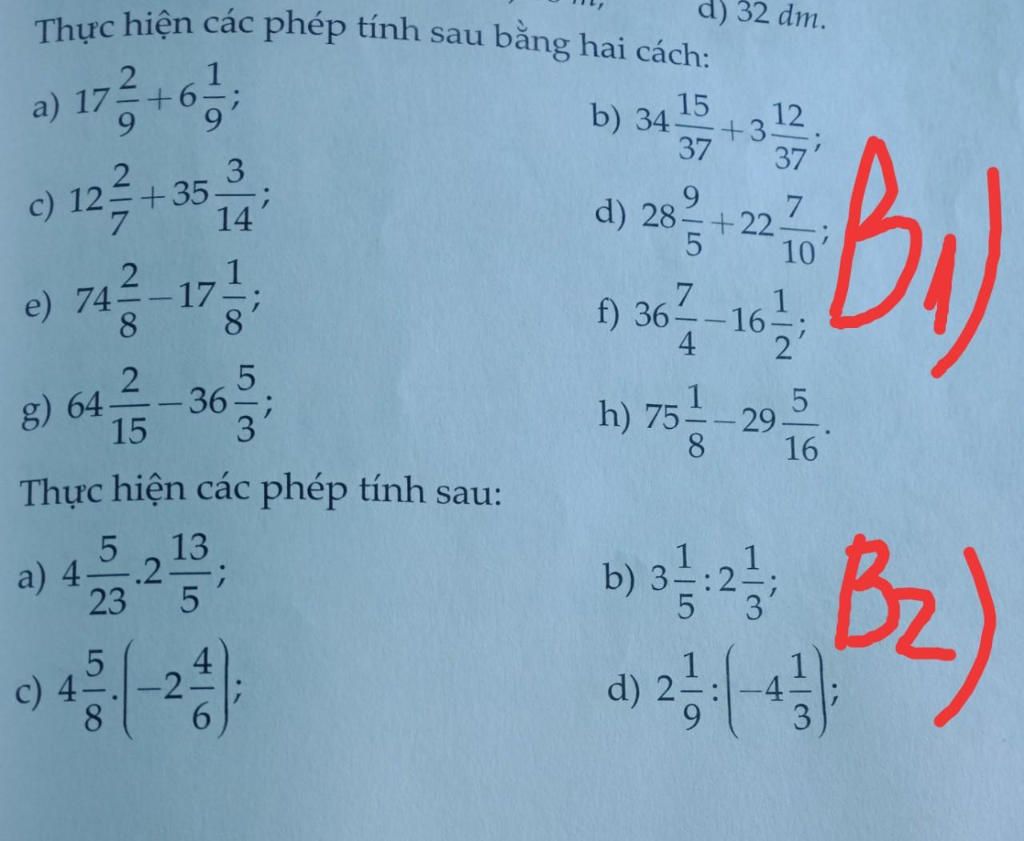 d) 32 dm.
Thực hiện các phép tính sau bằng hai cách:
a) 17 2/9 + 6 1/9; b) 34 15/37 + 3 12/37;
c) 12 2/7 + 35 3/14; d) 28 9/5 + 22 7/10;
B1)
e) 74 2/8 − 17 1/8; f) 36 7/4 − 16 1/2;
g) 64 2/15 − 36 5/3; h) 75 1/8 − 29 5/16.
Thực hiện các phép tính sau:
a) 4 5/23 . 2 13/5; b) 3 1/5 : 2 1/3;
B2)
c) 4 5/8 . (−2 4/6); d) 2 1/9 : (−4 1/3);